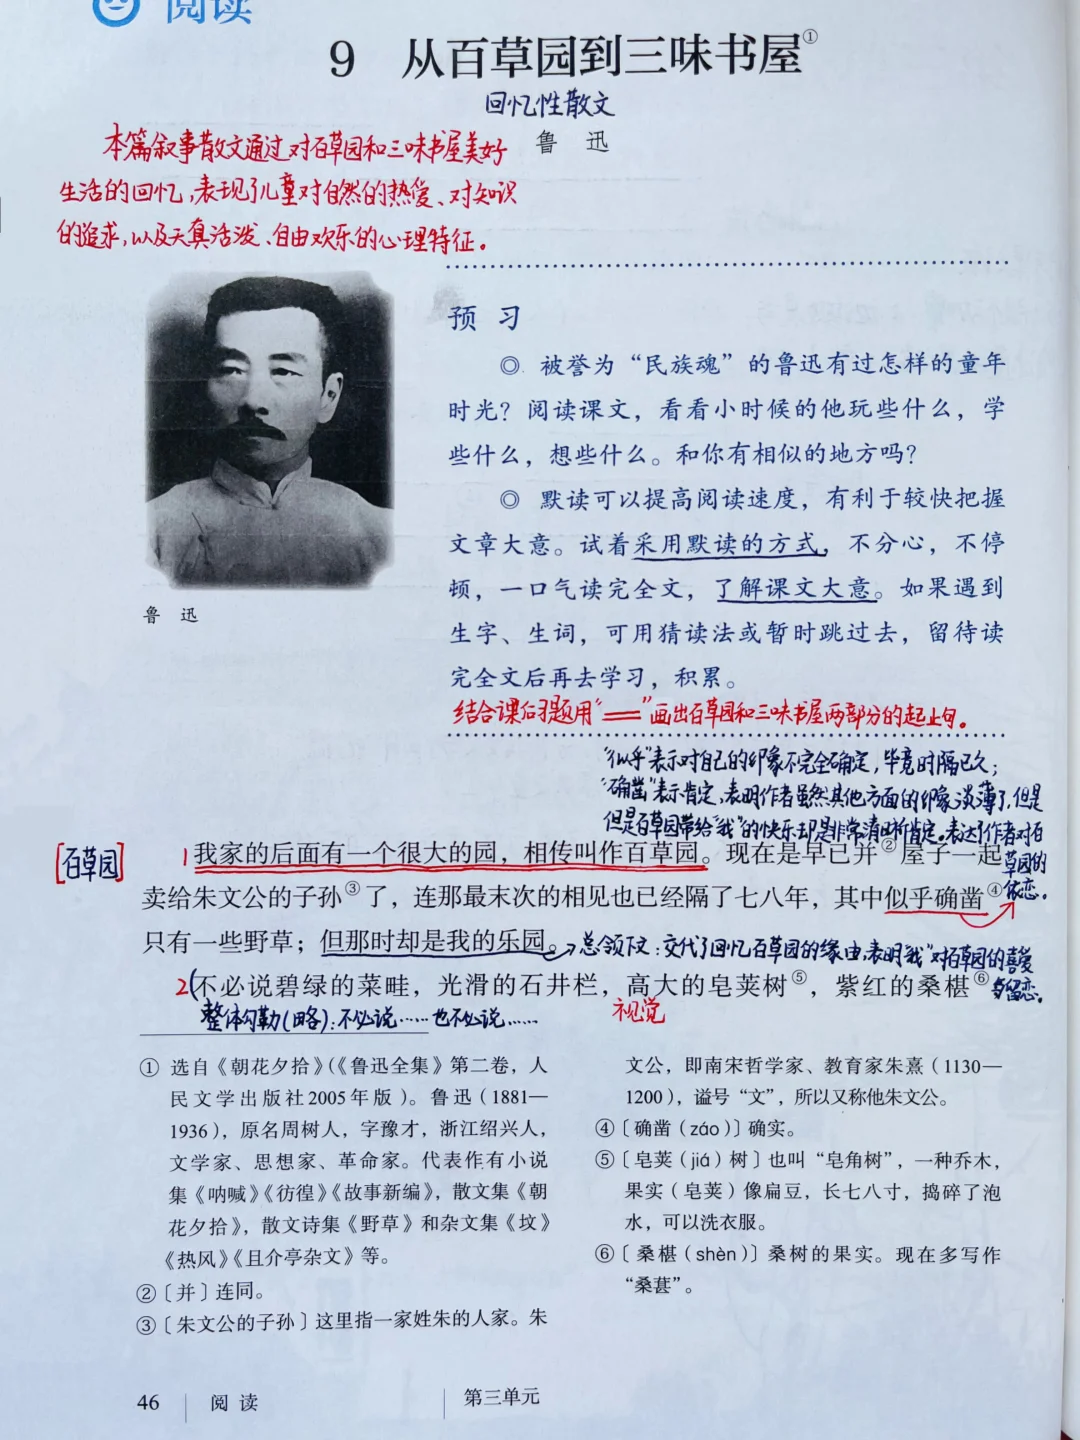 阅读
9 从百草园到三味书屋①
回忆性散文
鲁 迅
本篇叙事散文通过对百草园和三味书屋美好
生活的回忆,表现了儿童对自然的热爱、对知识
的追求,以及天真活泼、自由欢乐的心理特征。
预 习
◎ 被誉为“民族魂”的鲁迅有过怎样的童年
时光？阅读课文，看看小时候的他玩些什么，学
些什么，想些什么。和你有相似的地方吗？
◎ 默读可以提高阅读速度，有利于较快把握
文章大意。试着采用默读的方式，不分心，不停
顿，一口气读完全文，了解课文大意。如果遇到
生字、生词，可用猜读法或暂时跳过去，留待读
完全文后再去学习，积累。
鲁 迅
结合课后习题用“——”画出百草园和三味书屋两部分的起止句。
“似乎”表示对自己的印象不完全确定,毕竟时隔已久;
“确凿”表示肯定,表明作者虽然其他方面的印象淡薄了,但是
但是百草园带给“我”的快乐却是非常清晰肯定。表达了作者对百
草园的
依恋。
[百草园]
1 我家的后面有一个很大的园，相传叫作百草园。现在是早已并②屋子一起
卖给朱文公的子孙③了，连那最末次的相见也已经隔了七八年，其中似乎确凿④
只有一些野草；但那时却是我的乐园。
总领下文:交代了回忆百草园的缘由,表明“我”对百草园的喜爱
与留恋。
2(不必说碧绿的菜畦，光滑的石井栏，高大的皂荚树⑤，紫红的桑椹⑥
整体勾勒(略):不必说……也不必说……
视觉
① 选自《朝花夕拾》(《鲁迅全集》第二卷，人
民文学出版社2005年版)。鲁迅(1881—
1936)，原名周树人，字豫才，浙江绍兴人，
文学家、思想家、革命家。代表作有小说
集《呐喊》《彷徨》《故事新编》，散文集《朝
花夕拾》，散文诗集《野草》和杂文集《坟》
《热风》《且介亭杂文》等。
②〔并〕连同。
③〔朱文公的子孙〕这里指一家姓朱的人家。朱
文公，即南宋哲学家、教育家朱熹(1130—
1200)，谥号“文”，所以又称他朱文公。
④〔确凿(záo)〕确实。
⑤〔皂荚(jiá)树〕也叫“皂角树”，一种乔木，
果实(皂荚)像扁豆，长七八寸，捣碎了泡
水，可以洗衣服。
⑥〔桑椹(shèn)〕桑树的果实。现在多写作
“桑葚”。
46 阅 读 第三单元